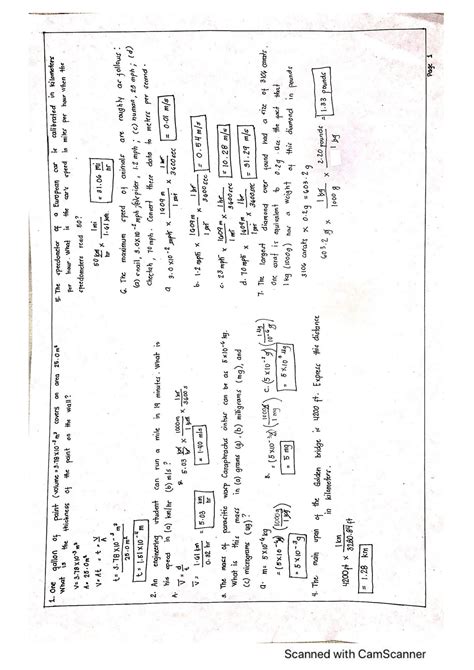 1. One gallon of paint (volume = 3.78 x 10⁻³ m³) covers an area 25.0 m²
What is the thickness of the paint on the wall?
V = 3.78 x 10⁻³ m³
A = 25.0 m²
V = At → t = V/A
t = 3.78 x 10⁻³ m³ / 25.0 m²
t = 1.51 x 10⁻⁴ m
2. An engineering student can run a mile in 19 minutes. What is
his speed in (a) km/hr (b) m/s?
A. V = d/t
V = 1.61 km / 0.32 hr
5.03 km/hr
B. 5.03 km/hr x 1000 m/1 km x 1 hr/3600 s
= 1.40 m/s
3. The mass of parasitic wasp can be as 5 x 10⁻⁶ kg.
What is this mass in (a) grams (g) (b) miligrams (mg), and
(c) micrograms (ug)
a. m = 5 x 10⁻⁶ kg
= (5 x 10⁻⁶ kg) (1000 g / 1 kg)
= 5 x 10⁻³ g
= 5 mg
4. The main span of the Golden bridge is 4200 ft. Express this distance
in kilometers.
4200 ft x 1 km / 3280.84 ft
= 1.28 km
5. The speedometer of a European car is calibrated in kilometers
per hour. What is the car's speed in miles per hour when the
speedometer reads 50?
50 km/hr x 1 mi / 1.61 km
= 31.06 mi/hr
6. The maximum speed of animals are roughly as follows:
(a) snail, 3.0 x 10⁻² mph; spider, 1.2 mph; (c) human, 23 mph; (d)
cheetah, 70 mph. Convert these data to meters per second.
a. 3.0 x 10⁻² mph x 1609 m / 1 mi x 1 hr / 3600 sec = 0.01 m/s
b. 1.2 mph x 1609 m / 1 mi x 1 hr / 3600 sec = 0.54 m/s
c. 23 mph x 1609 m / 1 mi x 1 hr / 3600 sec = 10.28 m/s
d. 70 mph x 1609 m / 1 mi x 1 hr / 3600 sec = 31.29 m/s
7. The largest diamond ever found had a size of 3106 carats.
One carat is equivalent to 0.2 g. Use the fact that
1 kg (1000 g) has a weight of this diamond in pounds
3106 carats x 0.2 g = 603.2 g
603.2 g x 1 kg / 1000 g x 2.20 pounds / 1 kg = 1.33 pounds
Page 1
Scanned with CamScanner